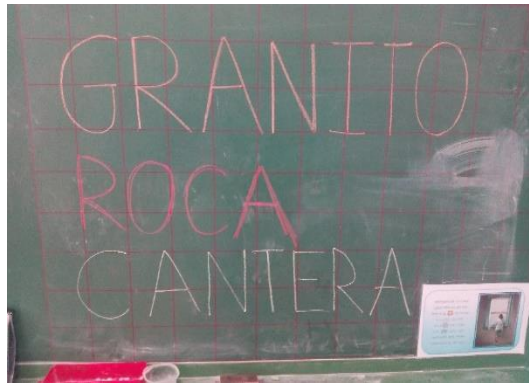 GRANITO
ROCA
CANTERA